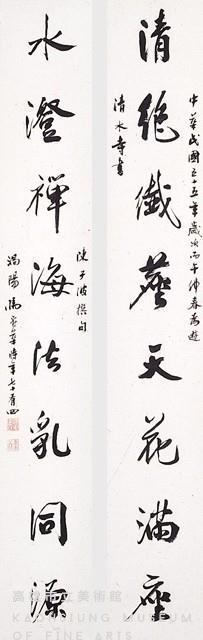 中華民國五十五年歲次丙午仲春為遊
清絕纖塵天花滿座
清水寺書
陳子波撰句
水澄禪海法乳同源
渦陽馬壽華時年七十有四
高雄市立美術館
KAOHSIUNG MUSEUM
OF FINE ARTS